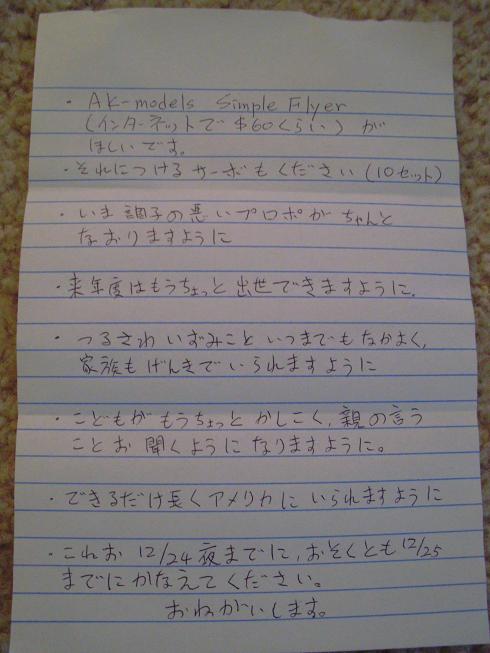 ・AK-models Simple Flyer
(インターネットで $60くらい) が
ほしいです。
・それにつける サーボもください (10セット)
・いま 調子の悪いプロポが ちゃんと
なおりますように
・来年度はもうちょっと 出世できますように.
・つるさわ いずみこと いつまでも なかよく,
家族も げんきで いられますように
・こどもが もうちょっと かしこく, 親の言う
ことお 聞くように なりますように。
・できるだけ長く アメリカに いられますように
・これお 12/24 夜までに, おそくとも 12/25
までに かなえて ください。
おねがいします。